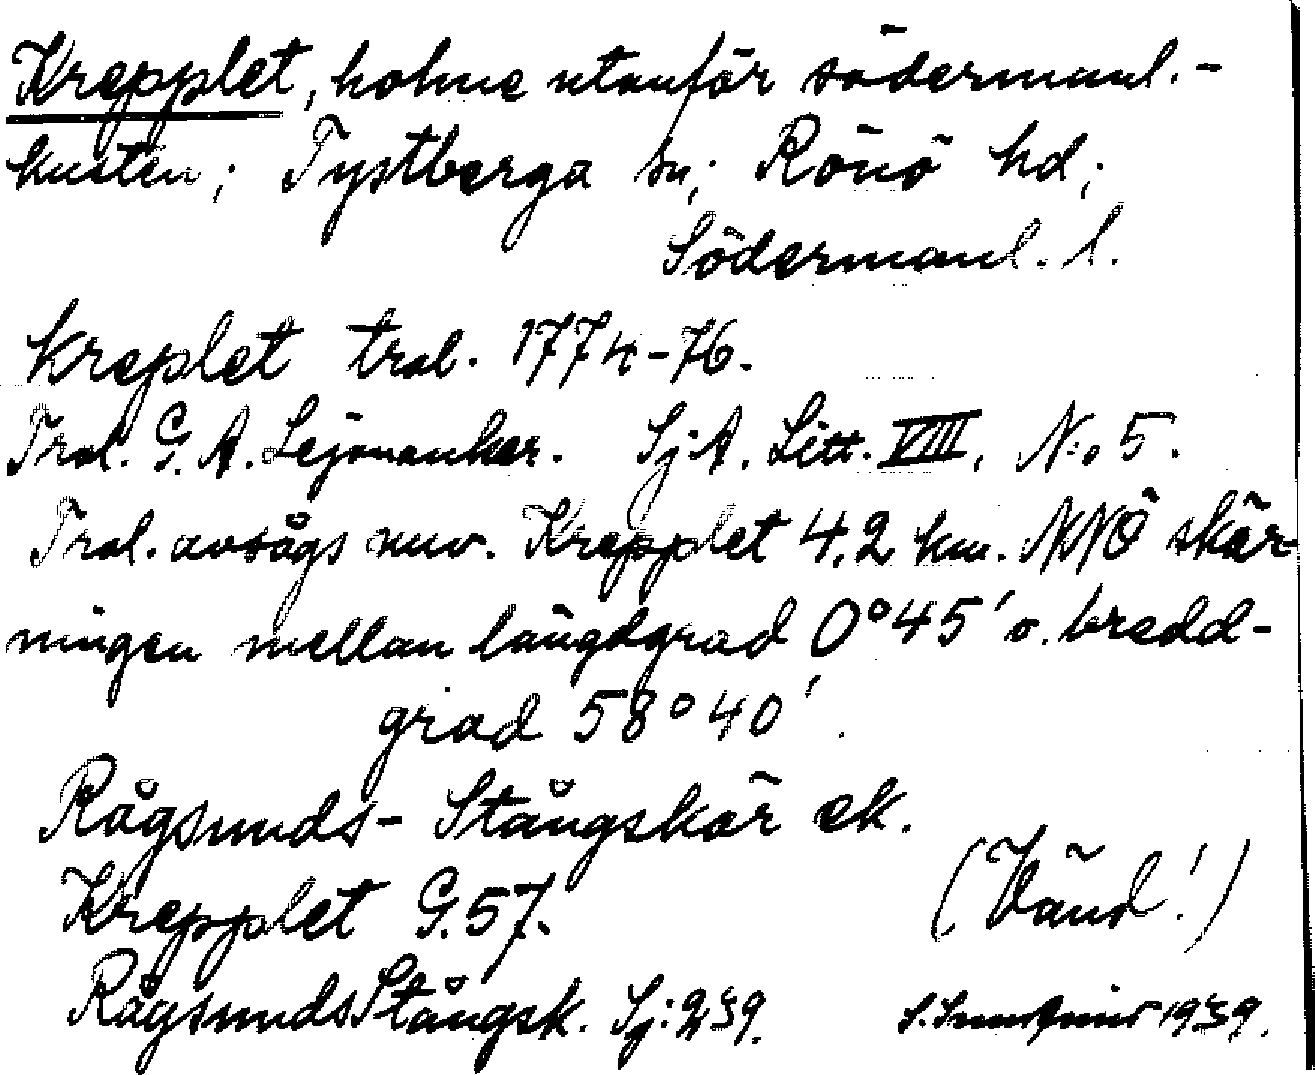 Krepplet, holme utanför södermanl.-
kusten; Tystberga sn; Rönö hd;
Södermanl. l.
Kreplet trol. 1774-76.
Trol. G. A. Lejonanker. Sj A. Litt. VIII, N:o 5.
Trol. avsågs nuv. Krepplet 4,2 km. NNÖ skär-
ningen mellan längdgrad 0°45' o. bredd-
grad 58°40'.
Rågsunds- Stångskär ek.
Krepplet G. 57.
(Vänd!)
Rågsunds Stångsk. Sj: 239.
1939.